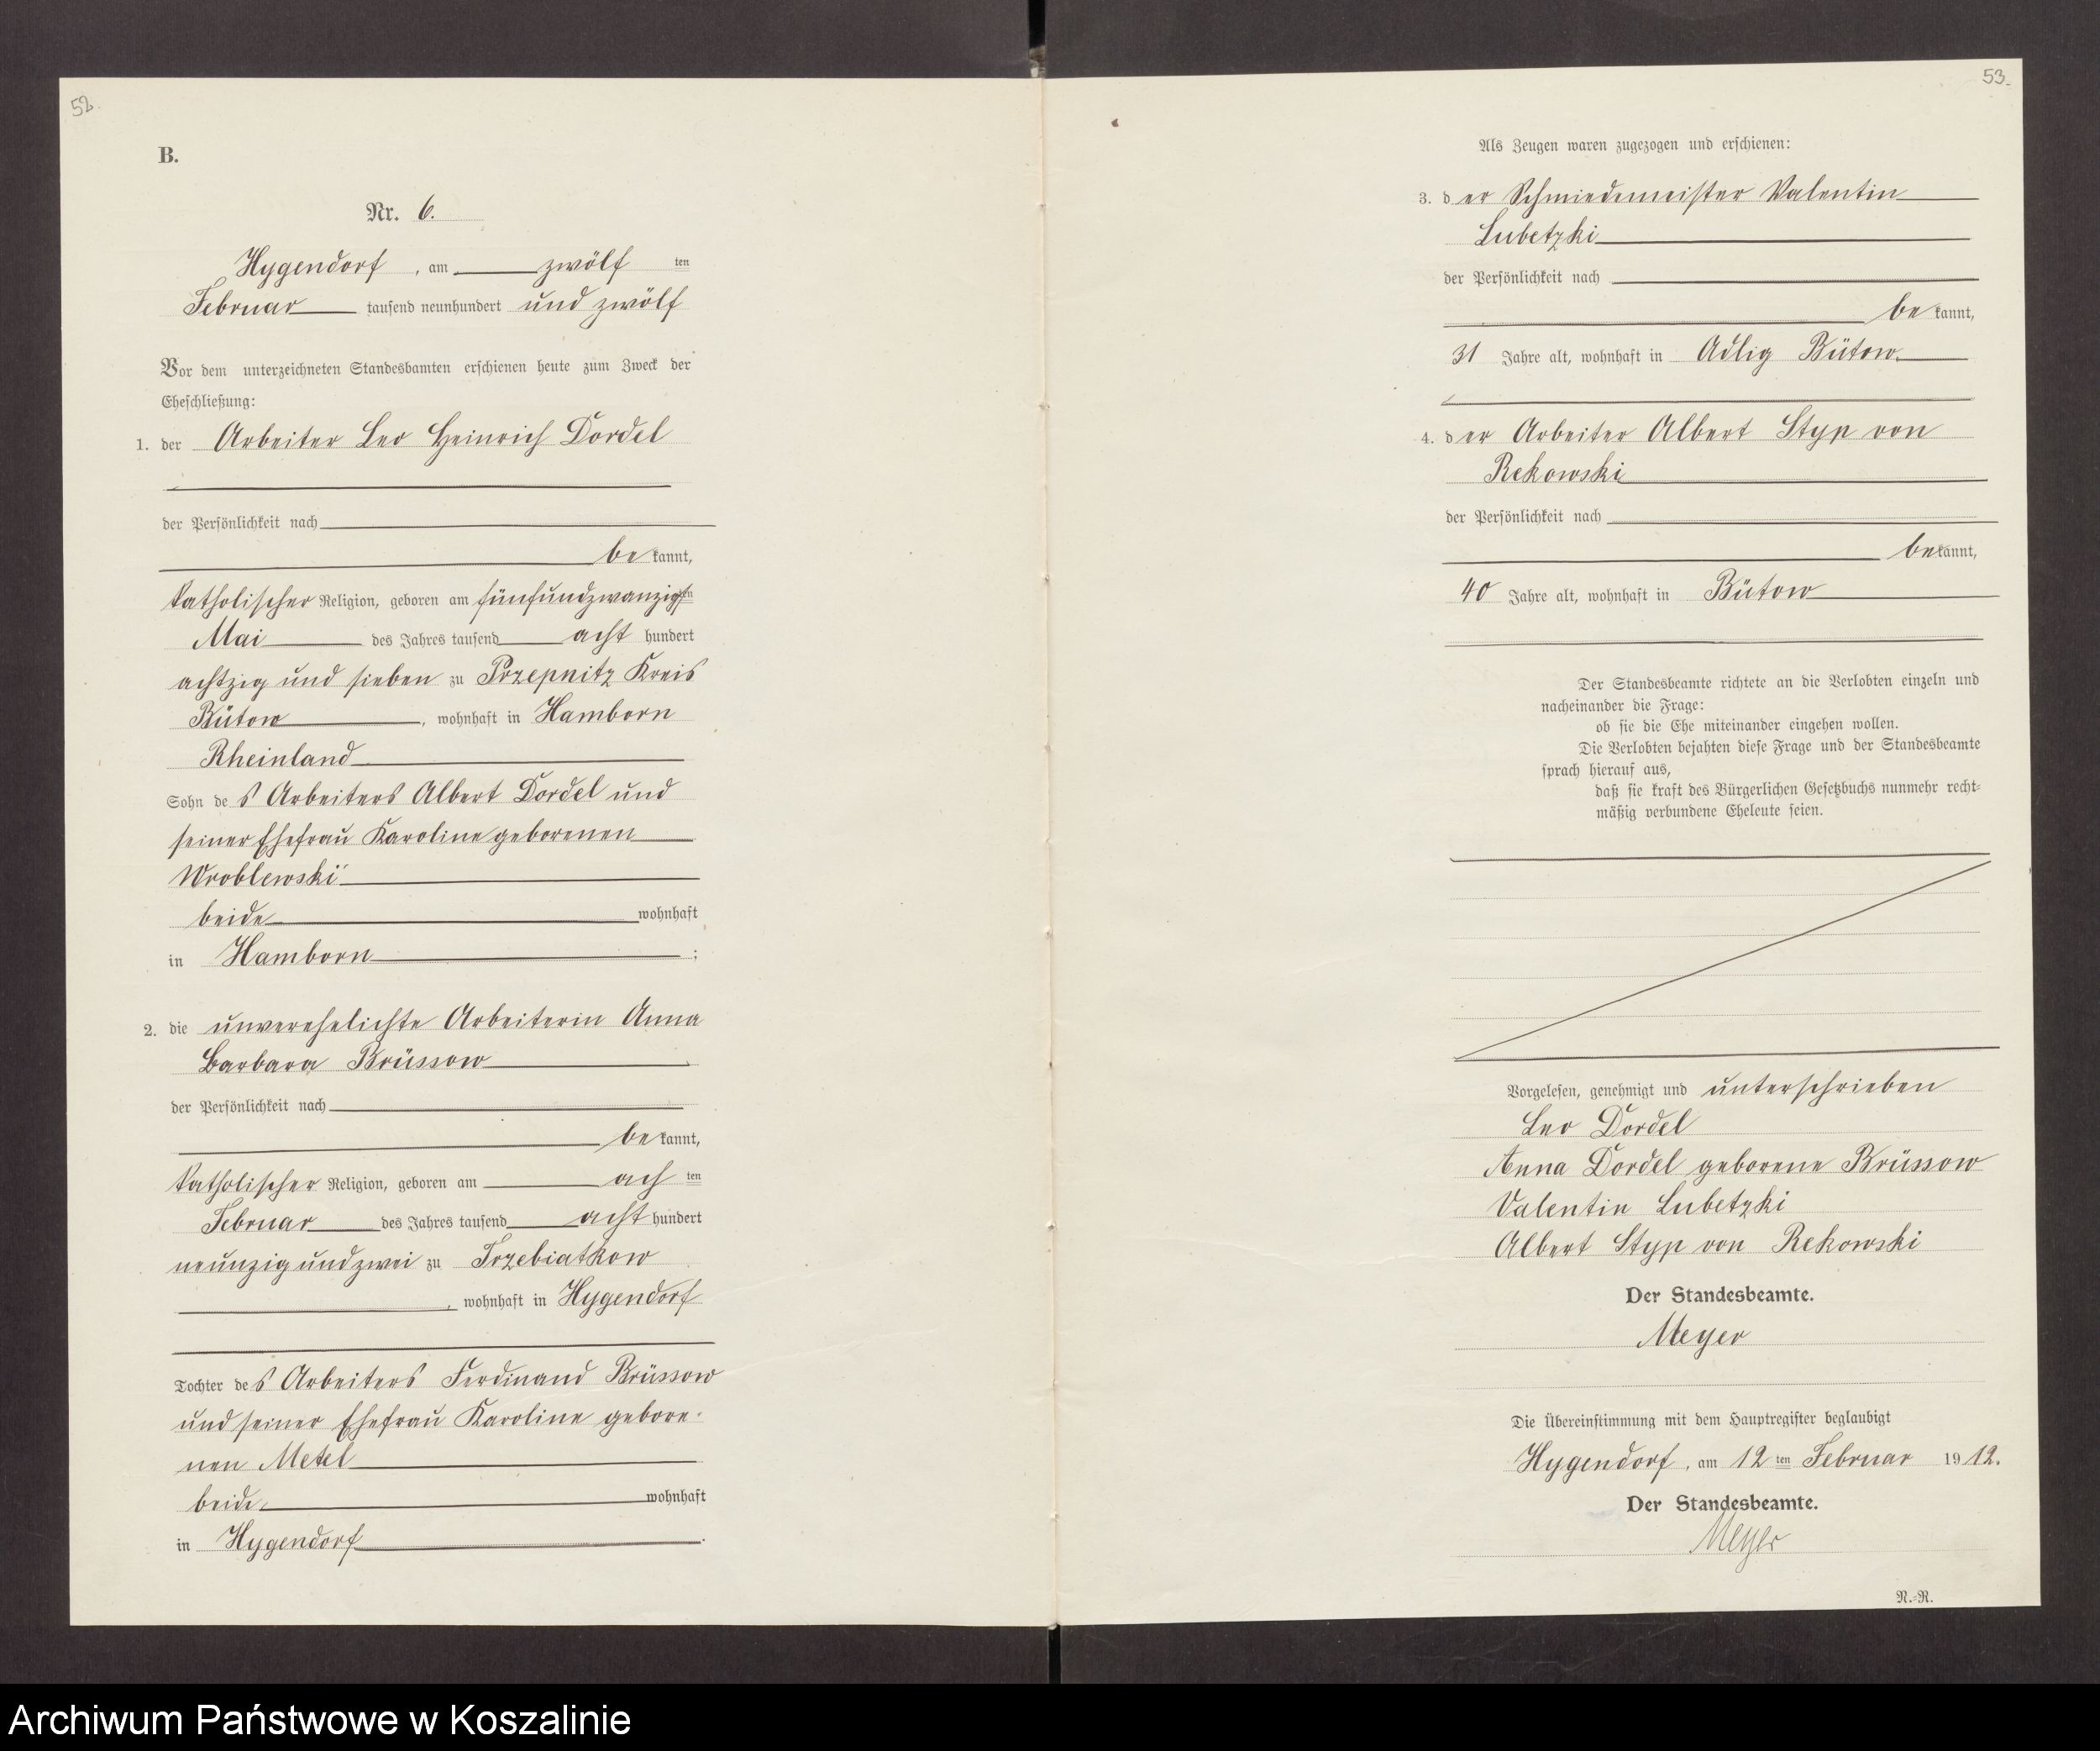 52.
B.
Nr. 6.
Hygendorf, am zwölf ten
Februar tausend neunhundert und zwölf
Vor dem unterzeichneten Standesbamten erschienen heute zum Zweck der
Eheschließung:
1. der Arbeiter Leo Heinrich Dordel
der Persönlichkeit nach
be kannt,
katholischer Religion, geboren am fünfundzwanzigsten
Mai des Jahres tausend acht hundert
achtzig und sieben zu Przepnitz Kreis
Bütow, wohnhaft in Hamborn
Rheinland
Sohn des Arbeiters Albert Dordel und
seiner Ehefrau Karoline geborenen
Wroblewski
beide wohnhaft
in Hamborn ;
2. die unverehelichte Arbeiterin Anna
Barbara Brüssow
der Persönlichkeit nach
be kannt,
katholischer Religion, geboren am ach ten
Februar des Jahres tausend acht hundert
neunzig und zwei zu Trzebiatkow
, wohnhaft in Hygendorf
Tochter des Arbeiters Ferdinand Brüssow
und seiner Ehefrau Karoline gebore-
nen Metel
beide wohnhaft
in Hygendorf .
53.
Als Zeugen waren zugezogen und erschienen:
3. der Schmiedemeister Valentin
Lubetzki
der Persönlichkeit nach
be kannt,
31 Jahre alt, wohnhaft in Adlig Bütow.
4. der Arbeiter Albert Styp von
Rekowski
der Persönlichkeit nach
be kannt,
40 Jahre alt, wohnhaft in Bütow
Der Standesbeamte richtete an die Verlobten einzeln und
nacheinander die Frage:
ob sie die Ehe miteinander eingehen wollen.
Die Verlobten bejahten diese Frage und der Standesbeamte
sprach hierauf aus,
daß sie kraft des Bürgerlichen Gesetzbuchs nunmehr recht-
mäßig verbundene Eheleute seien.
Vorgelesen, genehmigt und unterschrieben
Leo Dordel
Anna Dordel geborene Brüssow
Valentin Lubetzki
Albert Styp von Rekowski
Der Standesbeamte.
Meyer
Die Übereinstimmung mit dem Hauptregister beglaubigt
Hygendorf, am 12 ten Februar 1912.
Der Standesbeamte.
Meyer
N.-R.
Archiwum Państwowe w Koszalinie